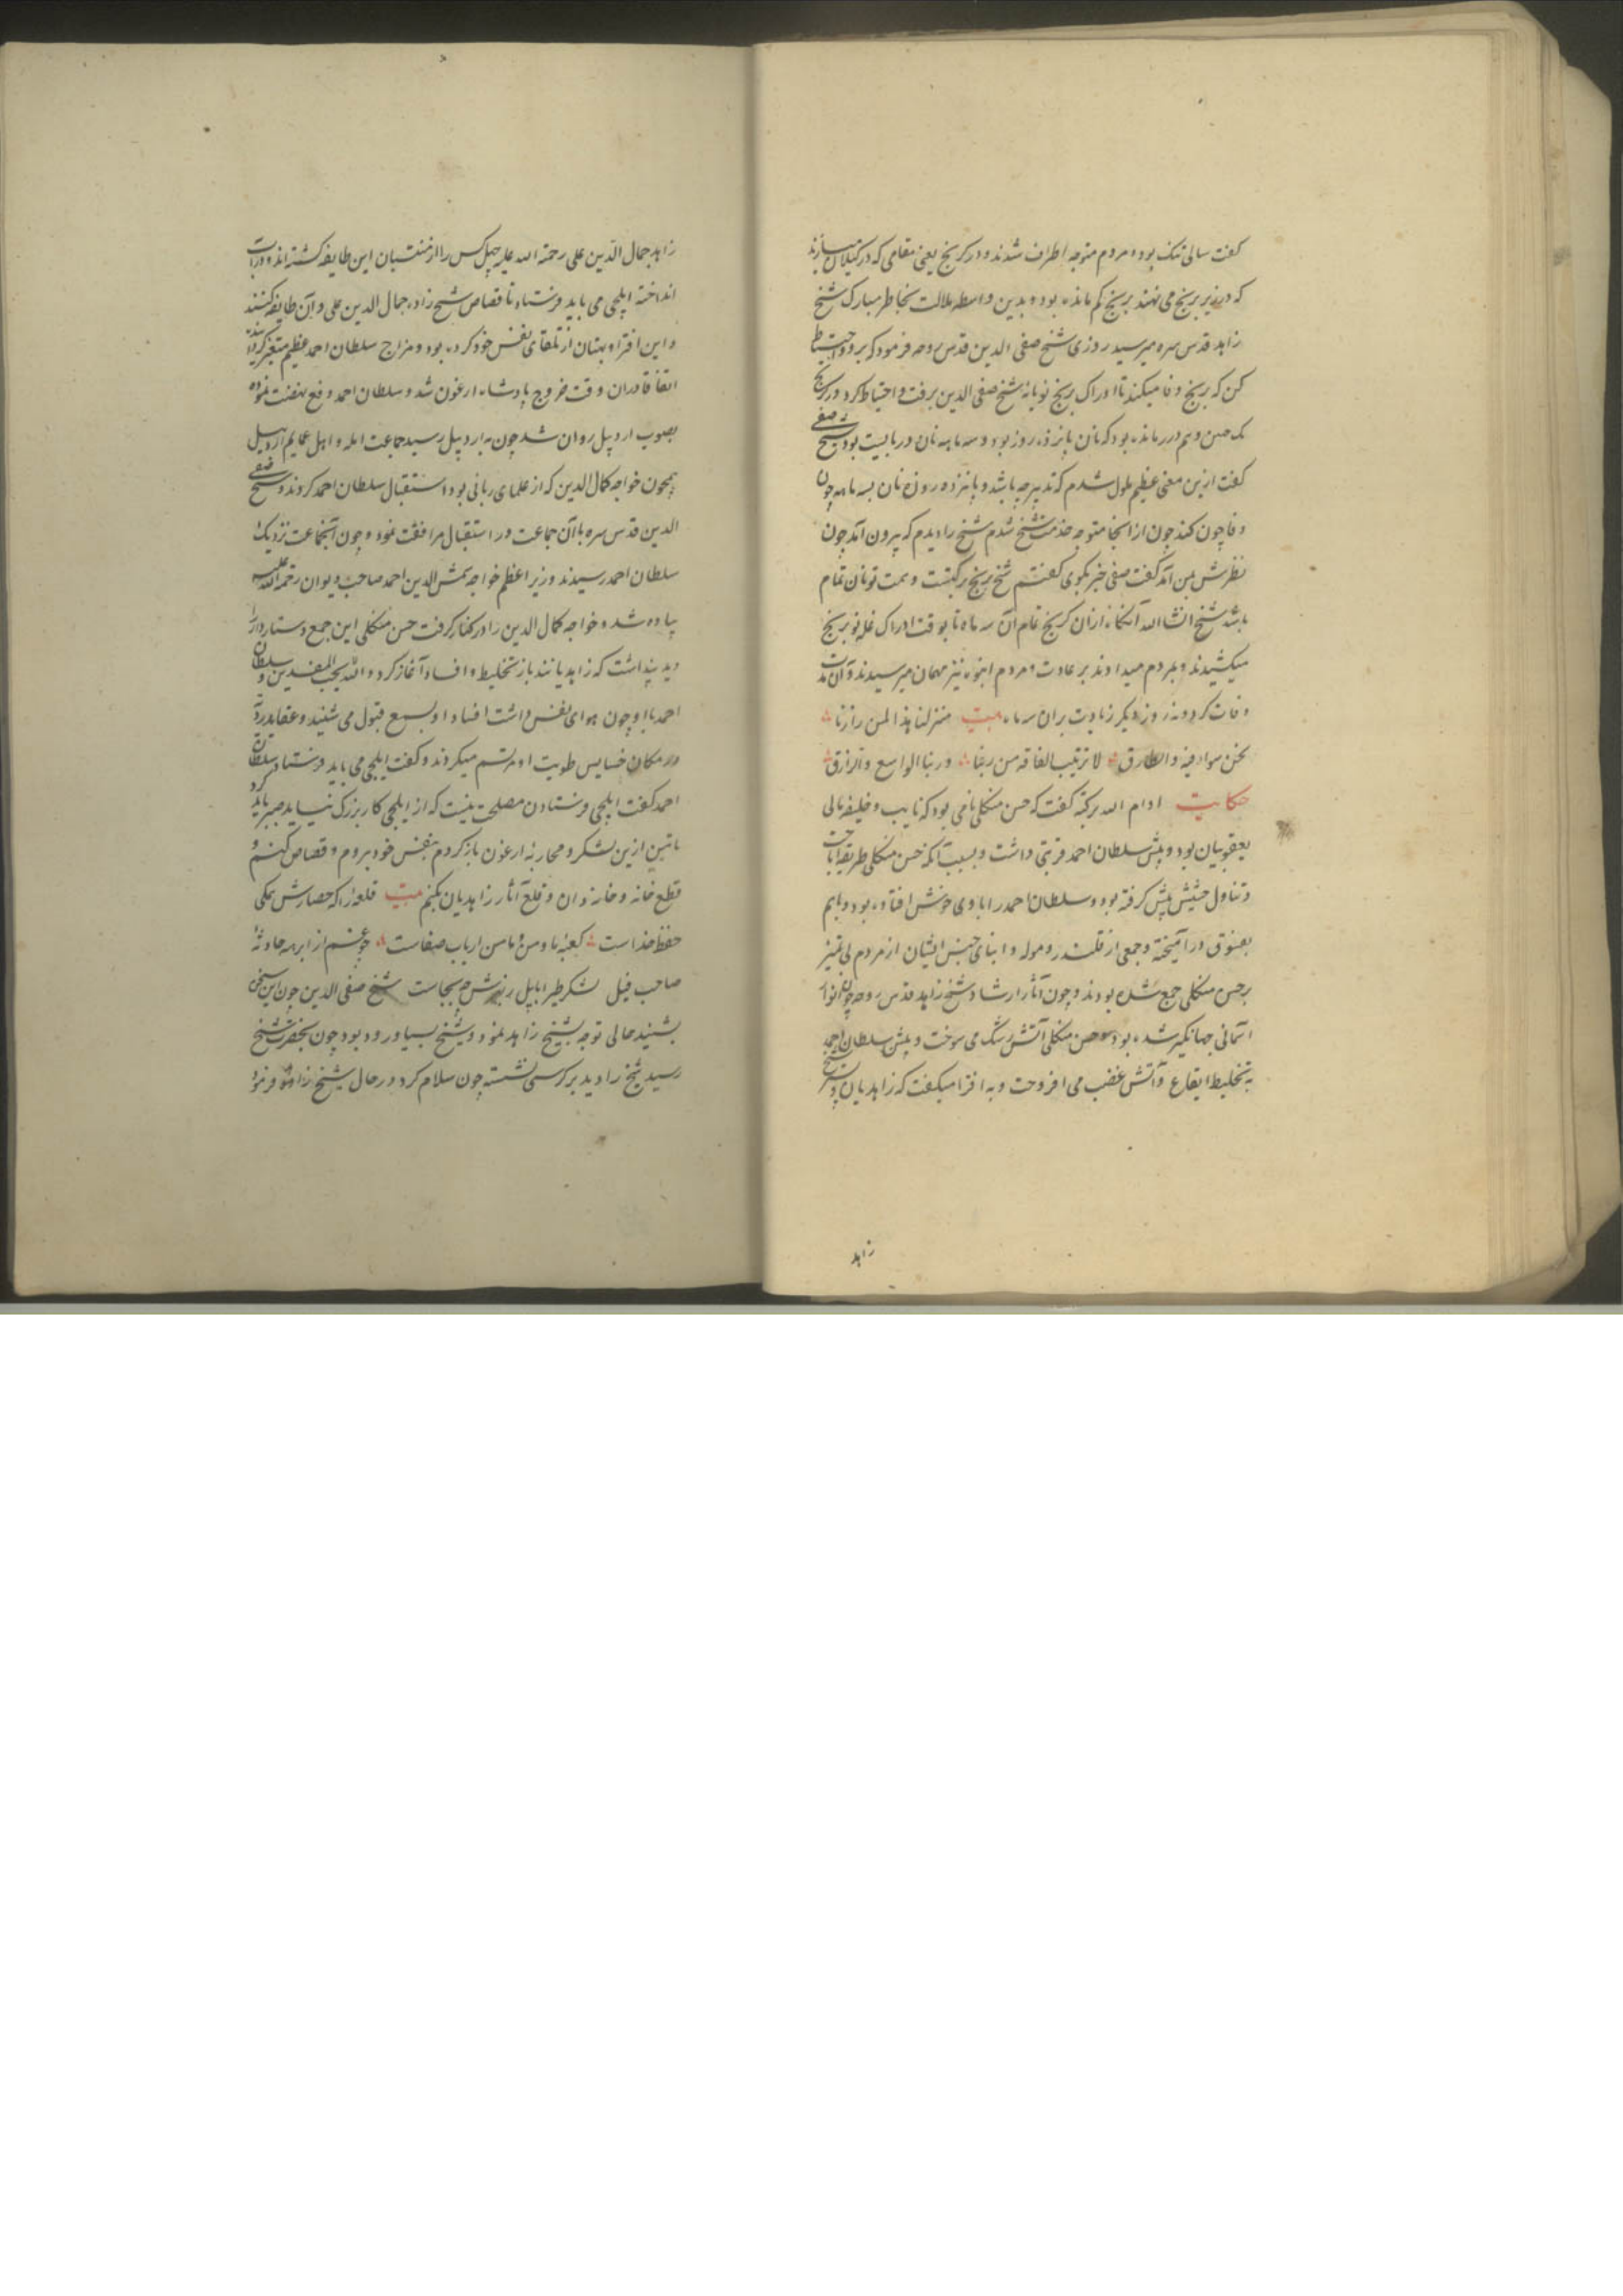 کفت سالی تنک بود و مردم متوجه اطراف شدند و در کرنج یعنی مقامی که در کیلان میسازند
که در زیر برنج می نهند برنج کم مانده بود و بدین واسطه ملالت بخاطر مبارک شیخ
زاهد قدس سره میرسید روزی شیخ صفی الدین قدس روحه فرمود که برو و احتیاط
کن که برنج وفا میکند تا ادراک برنج نو یا نه شیخ صفی الدین برفت و احتیاط کرد در کرنج
مانده بود که نان پانزده روز بود و سه ماهه نان دربایست بود شیخ صفی
کفت ازین معنی عظیم ملول شدم که تدبیر چه باشد و پانزده روزه نان بسه ماهه چون
وفا چون کند چون از آنجا متوجه خدمت شیخ شدم شیخ را دیدم که بیرون آمد چون
نظرش بمن آمد کفت صفی خبر بکوی کفتم شیخ برنج برکتست و همت تو نان تمام
باشد شیخ انشا الله آنکاه ازان کرنج تمام آن سه ماه تا بوقت ادراک غله نو برنج
میکشیدند و بمردم میدادند بر عادت و مردم انبوه نیز مهمان میرسیدند و آن
وفات کرد و نه روز دیکر زیادت بران سه ماه بیت منزلنا هذا لمن زارنا
نحن سواء فیه و الطارق لا نرتیب الفاقه من ربنا و ربنا الواسع و الرازق
حکایت ادام الله برکته کفت که حسن منکلی نامی بود که نایب و خلیفه بالی
یعقوبیان بود و پیش سلطان احمد قربتی داشت و بسبب آنکه حسن منکلی طریقه اباحت
و تناول حشیش پیش کرفته بود و سلطان احمد را با وی خوش افتاده بود و باهم
درآمیخته و جمعی از قلندر و موله و ابنای جنس ایشان از مردم بی تمیز
بر حسن منکلی جمع شده بودند و چون آثار ارشاد شیخ زاهد قدس روحه چون انوار
آسمانی جهانکیر شده بود حسن منکلی آتش رشک می سوخت و پیش سلطان احمد
به تخلیط ایقاع و آتش غضب می افروخت و به افترا میکفت که زاهدیان و پسر شیخ
زاهد
زاهد جمال الدین علی رحمة الله علیه چهل کس را از منتسبان این طایفه کشته اند و در آب
انداخته ایلچی می باید فرستاد تا قصاص شیخ زاده جمال الدین علی و آن طایفه کنند
و این افترا و بهتان از تلقای نفس خود کرده بود و مزاج سلطان احمد عظیم متغیر کردانیده
اتفاقا دران وقت خروج پادشاه ارغون شد و سلطان احمد دفع نهضت نموده
بصوب اردبیل روان شد چون به اردبیل رسید جماعت ائمه و اهل عمایم اردبیل
همچون خواجه کمال الدین که از علمای ربانی بود استقبال سلطان احمد کردند و شیخ صفی
الدین قدس سره با آن جماعت در استقبال مرافقت نمود و چون آنجماعت نزدیک
سلطان احمد رسیدند وزیر اعظم خواجه شمس الدین احمد صاحب دیوان رحمة الله علیه
پیاده شد و خواجه کمال الدین را در کنار کرفت حسن منکلی این جمع دستاردار را
دید پنداشت که زاهدیانند باز تخلیط و افساد آغاز کرد و الله لا یحب المفسدین و سلطان
احمد با او چون هوای نفس داشت افساد او بسمع قبول می شنید و عقاید ردّ
در مکان خسایس طویت او مرتسم میکردند و کفت ایلچی می باید فرستاد سلطان
احمد کفت ایلچی فرستادن مصلحت نیست که از ایلچی کار بزرک نیاید صبر باید کرد
تا من ازین لشکر و محاربه ارغون بازکردم بنفس خود بروم و قصاص کنم و
قطع خانه و خاندان و قلع آثار زاهدیان بکنم بیت قلعه را که حصارش همکی
حفظ خداست کعبه ما و من و مامن ارباب صفاست چه غم از ابرهه حادثه
صاحب فیل لشکر طیر ابابیل بجاست شیخ صفی الدین چون این سخن
بشنید حالی توجه بشیخ زاهد نمود و شیخ بسیاورود بود چون بحضرت شیخ
رسید شیخ را دید بر کرسی نشسته چون سلام کرد در حال شیخ زاهد فرمود